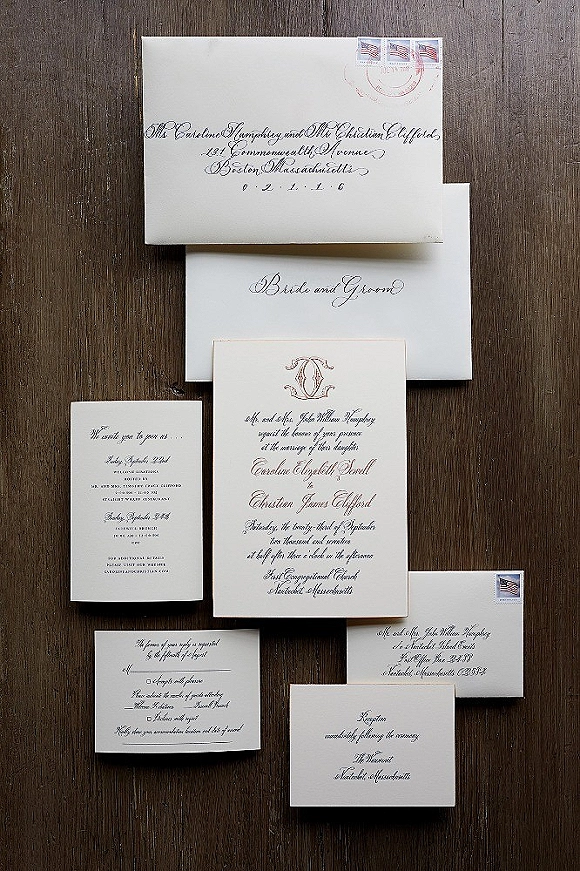 Ms Caroline Humphrey and Mr Christian Clifford
131 Commonwealth Avenue
Boston Massachusetts
0 2 1 1 6
Bride and Groom
Mr. and Mrs. John William Humphrey
request the honour of your presence
at the marriage of their daughter
Caroline Elizabeth Sewell
to
Christian James Clifford
Saturday, the twenty-third of September
two thousand and seventeen
at half after three o'clock in the afternoon
First Congregational Church
Nantucket, Massachusetts
We invite you to join us . . . .
Friday, September 22nd
WELCOME LIBATIONS
HOSTED BY
MR. AND MRS. TIMOTHY CRAIG CLIFFORD
STRAIGHT WHARF RESTAURANT
Sunday, September 24th
FAREWELL BRUNCH
FOR ADDITIONAL DETAILS
PLEASE VISIT OUR WEBSITE
CAROLINEANDCHRISTIAN.COM
Mr. and Mrs. John William Humphrey
c/o Nantucket Island
Post Office Box
Nantucket, Massachusetts
The favour of your reply is requested
by the fifteenth of August
M
Accepts with pleasure
Please indicate the number of guests attending
Welcome Libations Farewell Brunch
Declines with regret
Kindly share your accommodation location and date of arrival
Reception
immediately following the ceremony
The Wauwinet
Nantucket, Massachusetts